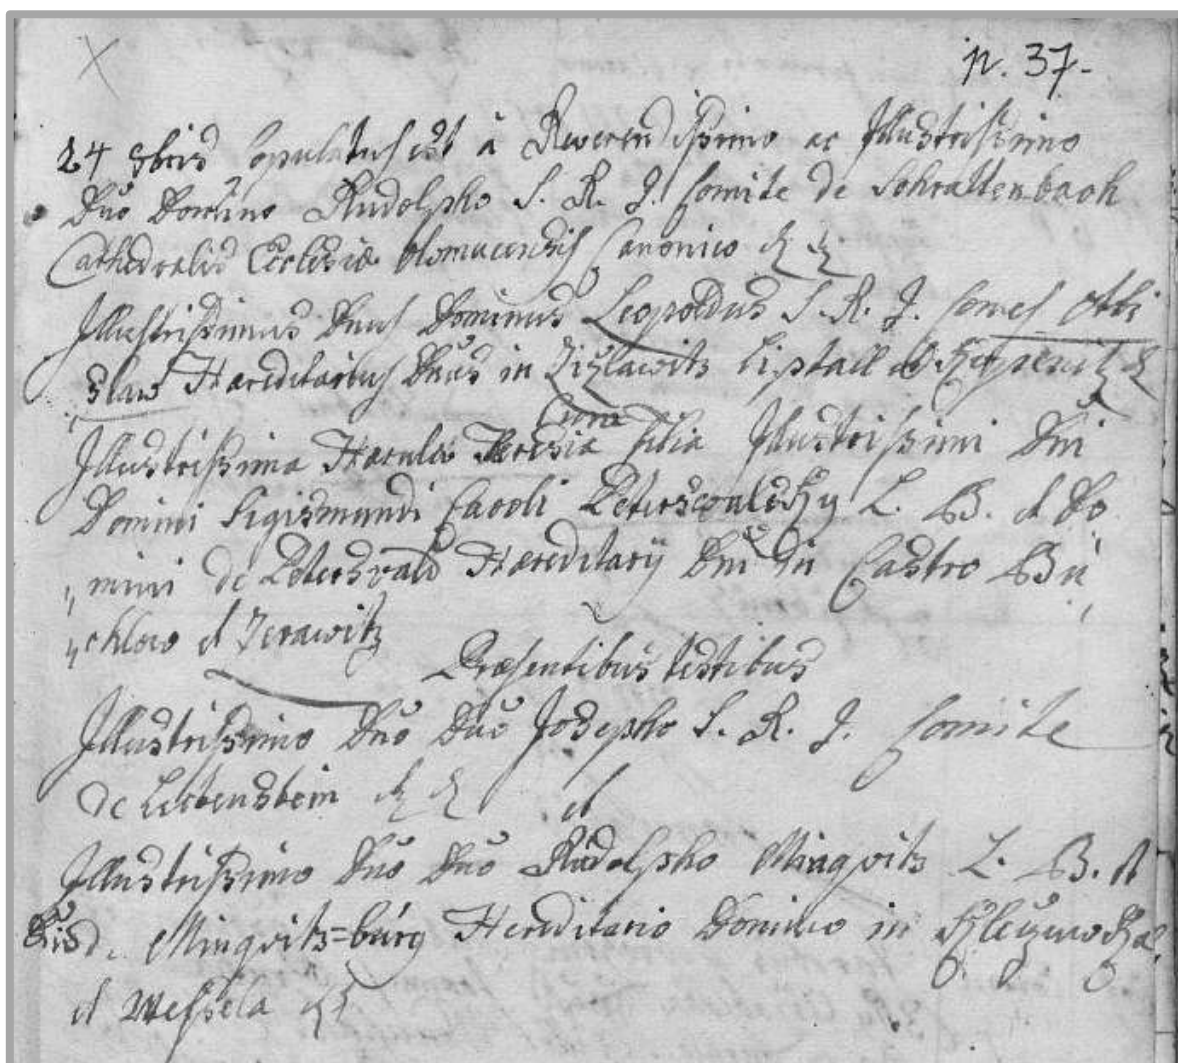 p. 37.
24 9bris Copulatus est à Reverendissimo ac Illustrissimo
Dño Domino Rudolpho S. R. J. Comite de Schrattenbach
Cathedralis Ecclesiæ Olomucensis Canonico &c &c
Illustrissimus Dnus Dominus Leopoldus S. R. J. Comes Otti
slaw Hæreditarius Dnus in Zižlawitz Liptall et &c
Cum
Illustrissima Hærula Theresia filia Illustrissimi Dni
Domini Sigismundi Caroli Peterswaldsky L. B. et Do
"mini de Petersvald Hæreditarÿ Dni in Castro Bu
"chlow et Zerawitz
Præsentibus testibus
Illustrissimo Dño Dño Josepho S. R. J. Comite
de Liebenstein &c &c et
Illustrissimo Dño Dño Rudolpho Minqvitz L. B. et
de Minqvitz=burg Hereditario Domino in
et Wessela &c